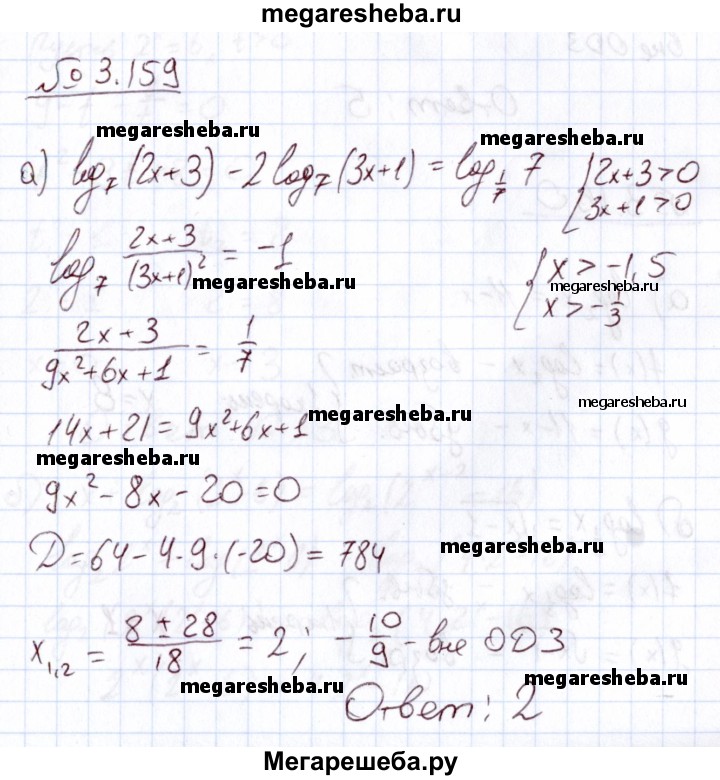 megaresheba.ru
№ 3.159
megaresheba.ru
megaresheba.ru
а) log₇(2x+3) - 2log₇(3x+1) = log_{1/7} 7 { 2x+3>0
3x+1>0
log₇ (2x+3)/(3x+1)² = -1 { x > -1,5
megaresheba.ru
megaresheba.ru
x > -1/3
(2x+3)/(9x²+6x+1) = 1/7
megaresheba.ru
14x+21 = 9x²+6x+1
megaresheba.ru
megaresheba.ru
9x² - 8x - 20 = 0
Д = 64 - 4·9·(-20) = 784
megaresheba.ru
x₁,₂ = (8 ± 28)/18 = 2; -10/9 - вне ОДЗ
megaresheba.ru
megaresheba.ru
Ответ: 2
Мегарешеба.ру